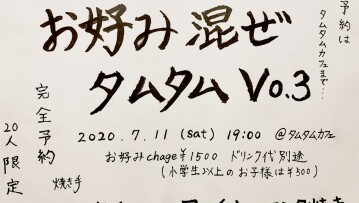 お好み混ぜ
タムタム Vo.3
予約は
タムタムカフェまで…
完全予約
20人限定
2020.7.11 (sat) 19:00 @タムタムカフェ
お好みchage¥1500 ドリンク代別途
(小学生以上のお子様は¥500)
焼き手